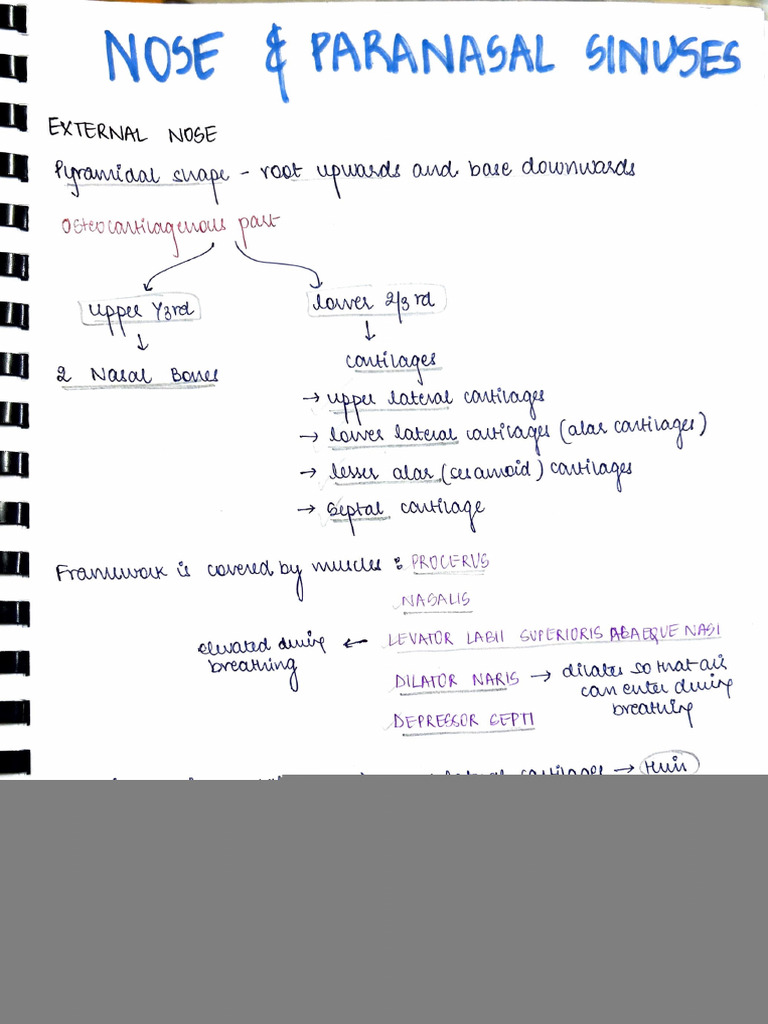 NOSE & PARANASAL SINUSES
EXTERNAL NOSE
Pyramidal shape - root upwards and base downwards
Osteocartilagenous part
upper 1/3rd
lower 2/3rd
↓
↓
2 Nasal Bones
cartilages
→ upper lateral cartilages
→ lower lateral cartilages (alar cartilages)
→ lesser alar (sesamoid) cartilages
→ septal cartilage
Framework is covered by muscles : PROCERUS
NASALIS
elevated during breathing ← LEVATOR LABII SUPERIORIS ABAEQUE NASI
DILATOR NARIS → dilates so that air can enter during breathing
DEPRESSOR SEPTI
cartilages →